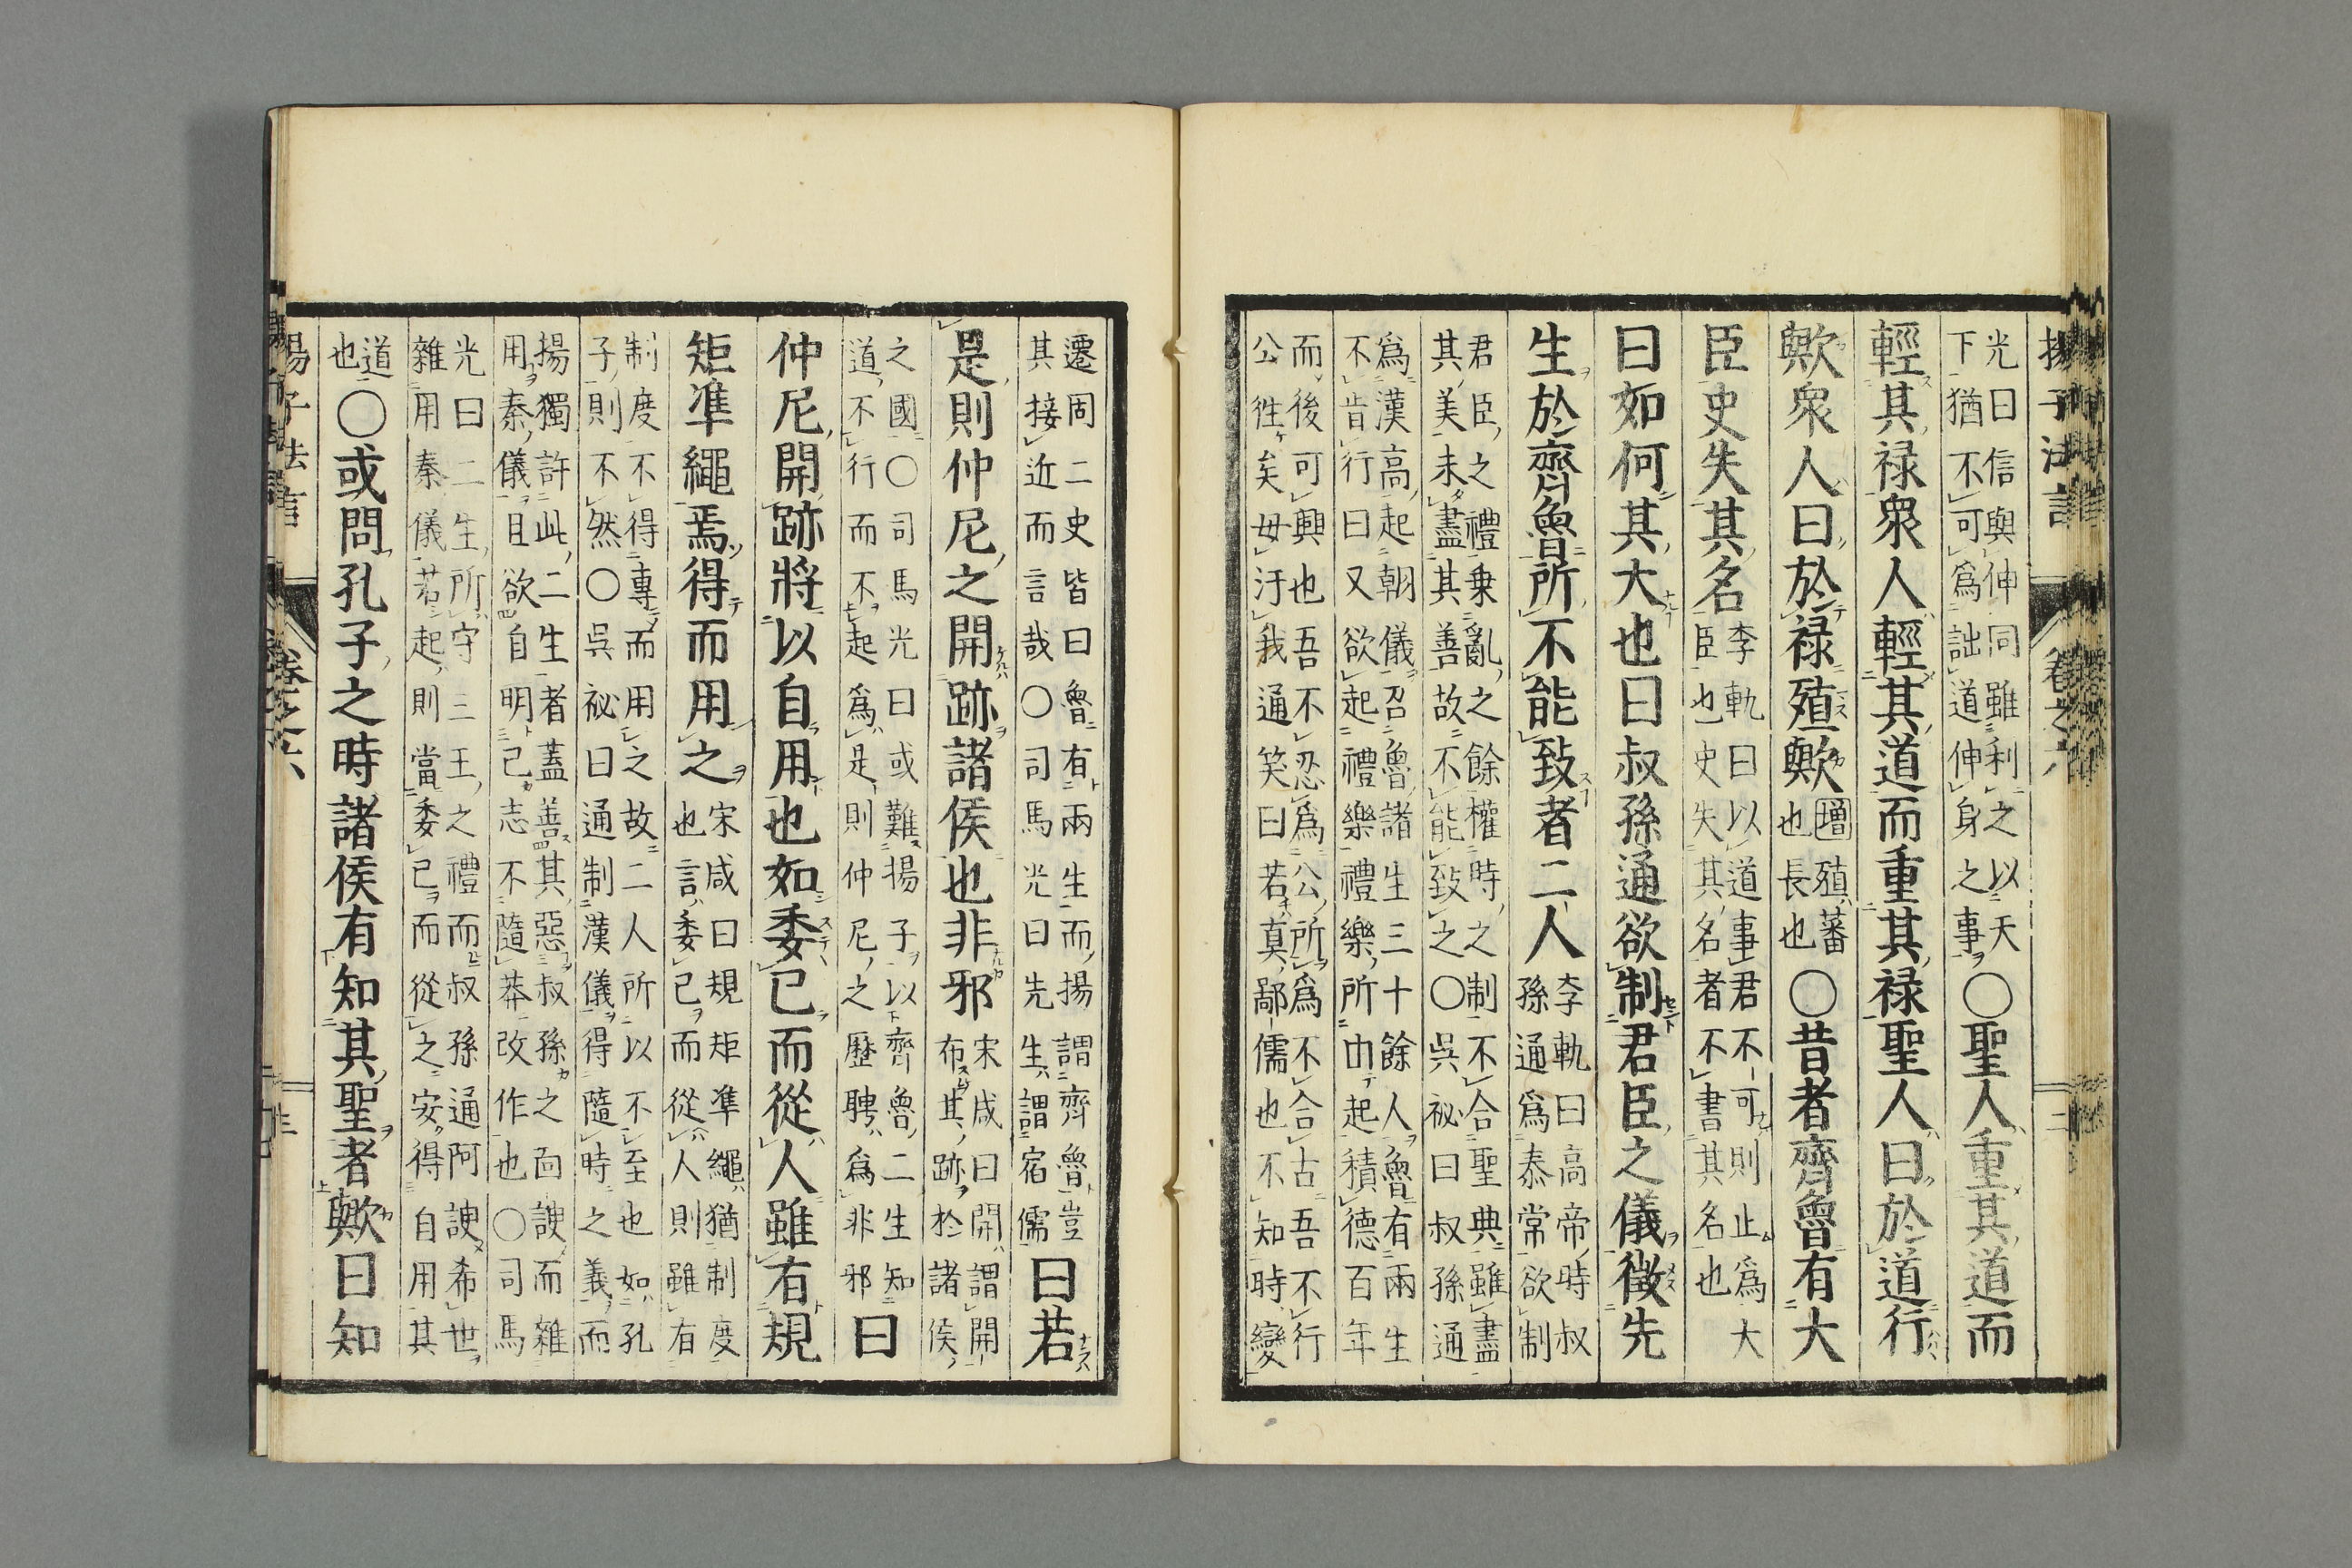 揚子法言 卷之六
光曰信與伸同雖利之以天
下猶不可爲詘道伸身之事
〇聖人重其道而
輕其祿衆人輕其道而重其祿聖人曰於道行
歟衆人曰於祿殖歟
增殖蕃
也長也
〇昔者齊魯有大
臣史失其名
李軌曰以道事君不可則止爲大
臣也史失其名者不書其名也
曰如何其大也曰叔孫通欲制君臣之儀徴先
生於齊魯所不能致者二人
李軌曰高帝時叔
孫通爲泰常欲制
君臣之禮乗亂之餘權時之制不合聖典雖盡
其美未盡其善故不能致之〇吳祕曰叔孫通
爲漢高起朝儀召魯諸生三十餘人魯有兩生
不肯行曰又欲起禮樂禮樂所由起積德百年
而後可興也吾不忍爲公所爲不合古吾不行
公徃矣毋汙我通笑曰若真鄙儒也不知時變
遷固二史皆曰魯有兩生而揚謂齊魯豈
其接近而言哉〇司馬光曰先生謂宿儒
曰若
是則仲尼之開跡諸侯也非邪
宋咸曰開謂開
布其跡於諸侯
之國〇司馬光曰或難揚子以齊魯二生知
道不行而不起爲是則仲尼之歷聘爲非邪
曰
仲尼開跡將以自用也如委己而從人雖有規
矩準繩焉得而用之
宋咸曰規矩準繩猶制度
也言委己而從人則雖有
制度不得專而用之故二人所以不至也如孔
子則不然〇吳祕曰通制漢儀得隨時之義而
揚獨許此二生者蓋善其惡叔孫之面諛而雜
用秦儀且欲自明己志不隨莽改作也〇司馬
光曰二生所守三王之禮而叔孫通阿諛希世
雜用秦儀若起則當委己而從之安得自用其
道
也
〇或問孔子之時諸侯有知其聖者歟曰知
揚子法言 卷之六